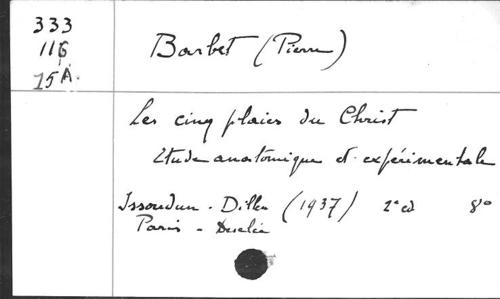 333
116
15A.
Barbet (Pierre)
Les cinq plaies du Christ
Etude anatomique et expérimentale
Issoudun - Dillen (1937) 2e ed 8°
Paris -